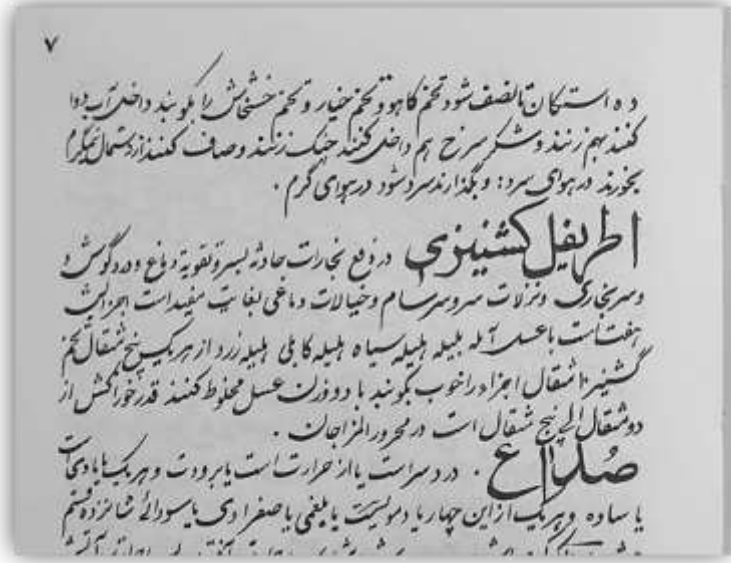 ۷
ده استکان تا نصف شود تخم کاهو و تخم خیار و تخم خشخاش را بکوبند داخل آب دوا
کنند بهم زنند و شکر سرخ هم داخل کنند خنک زنند و صاف کنند از دستمال نیمگرم
بخورند در هوای سرد : و بگذارند سرد شود در هوای گرم .
اطریفل کشنیزی در دفع بخارات حادثه بسر و تقویة دماغ و درد گوش و
و سر بخاری و نزلات سر و سرسام و خیالات دماغی بغایت مفید است اجزایش
هفت است با عسل آمله بلیله هلیله سیاه هلیله کابلی هلیله زرد از هر یک پنج مثقال تخم
گشنیز ۱۰ مثقال اجزا را خوب بکوبند با دو وزن عسل مخلوط کنند قدر خوراکش از
دو مثقال الی پنج مثقال است در محرور المزاجان .
صُداع . درد سر است یا از حرارت است یا برودت و هر یک یا مادی است
یا ساده و هر یک از این چهار یا دمویست یا بلغمی یا صفراوی یا سودائی شانزده قسم